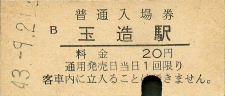 普通入場券
B 玉造駅
料金 20円
通用発売日当日1回限り
客車内に立入ることはできません。
43.-9.21